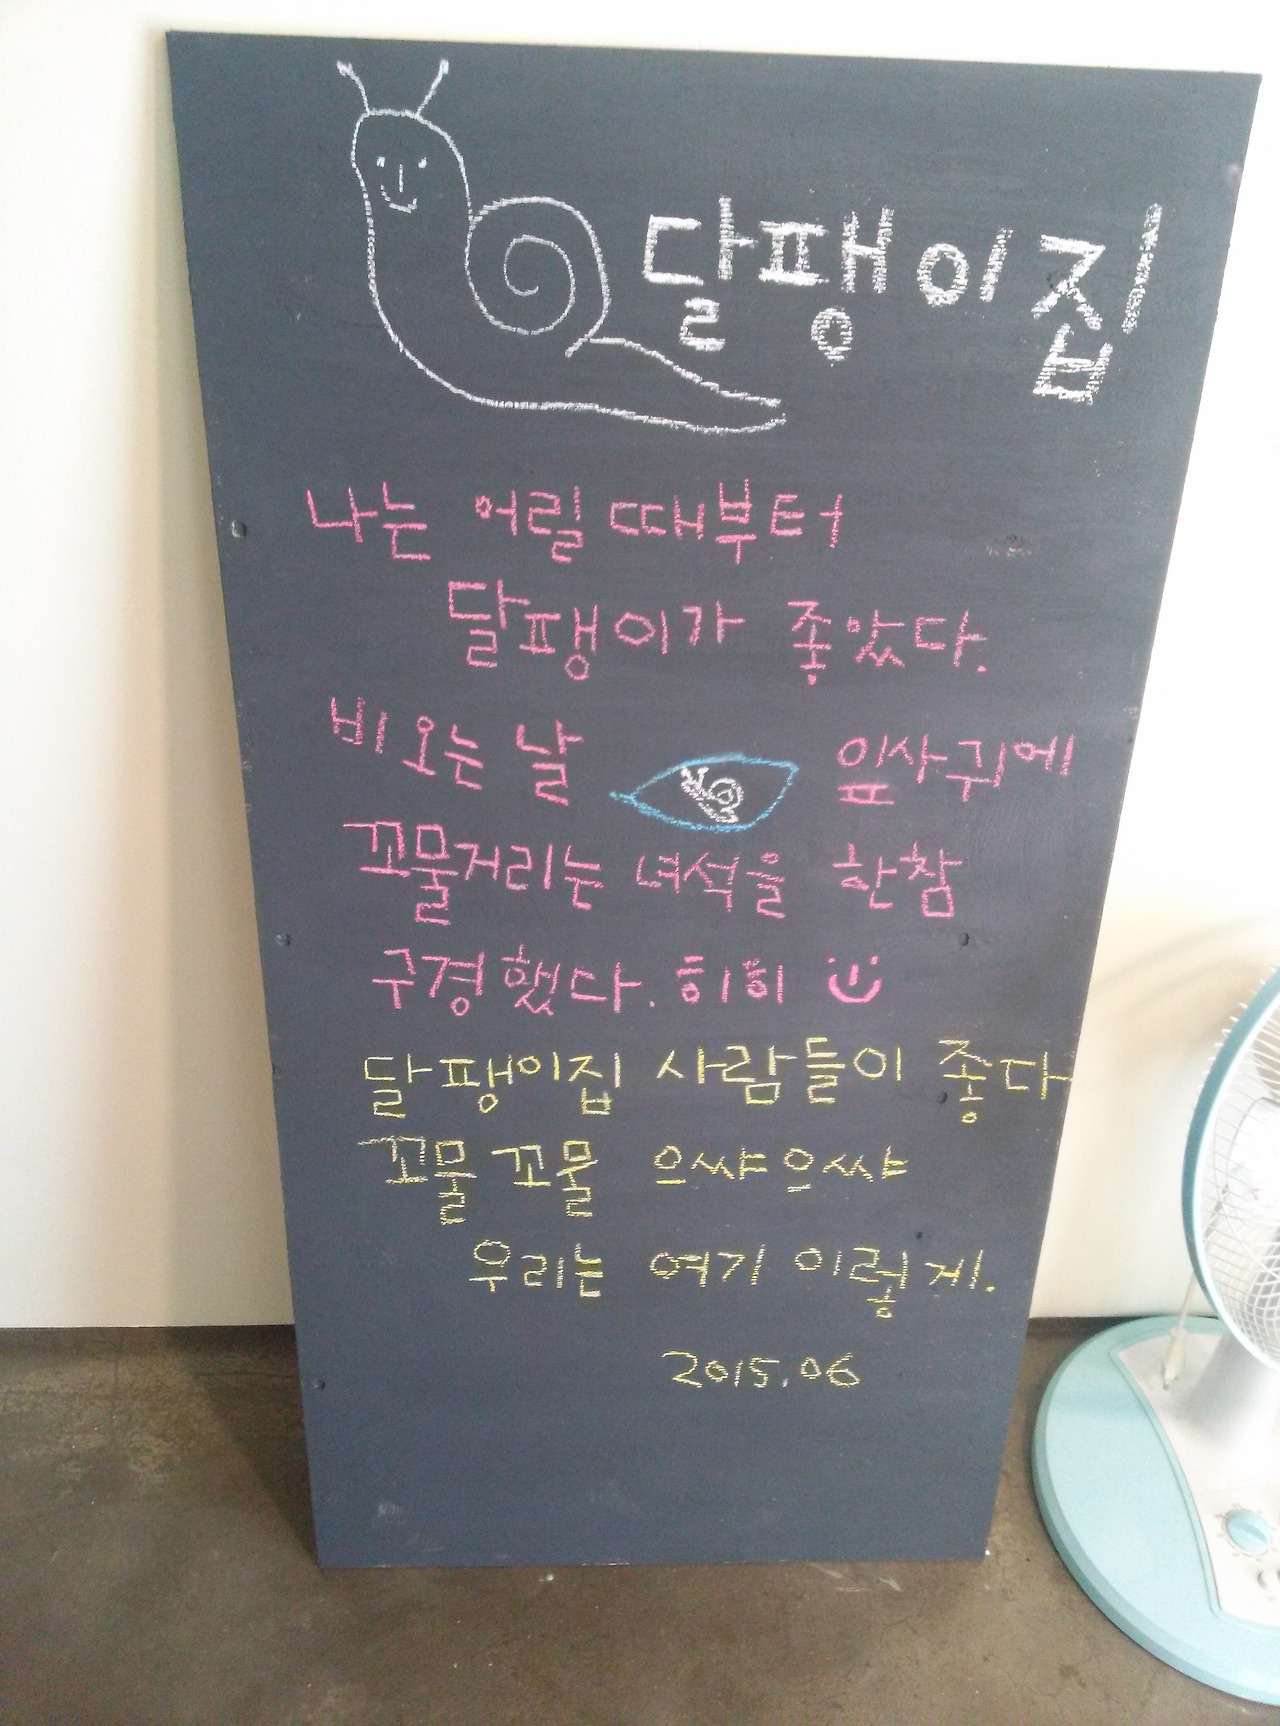 달팽이집
나는 어릴 때부터
달팽이가 좋았다.
비 오는 날 잎사귀에
꼬물거리는 녀석을 한참
구경했다. 히히
달팽이집 사람들이 좋다
꼬물꼬물 으쌰으쌰
우리는 여기 이렇게.
2015.06